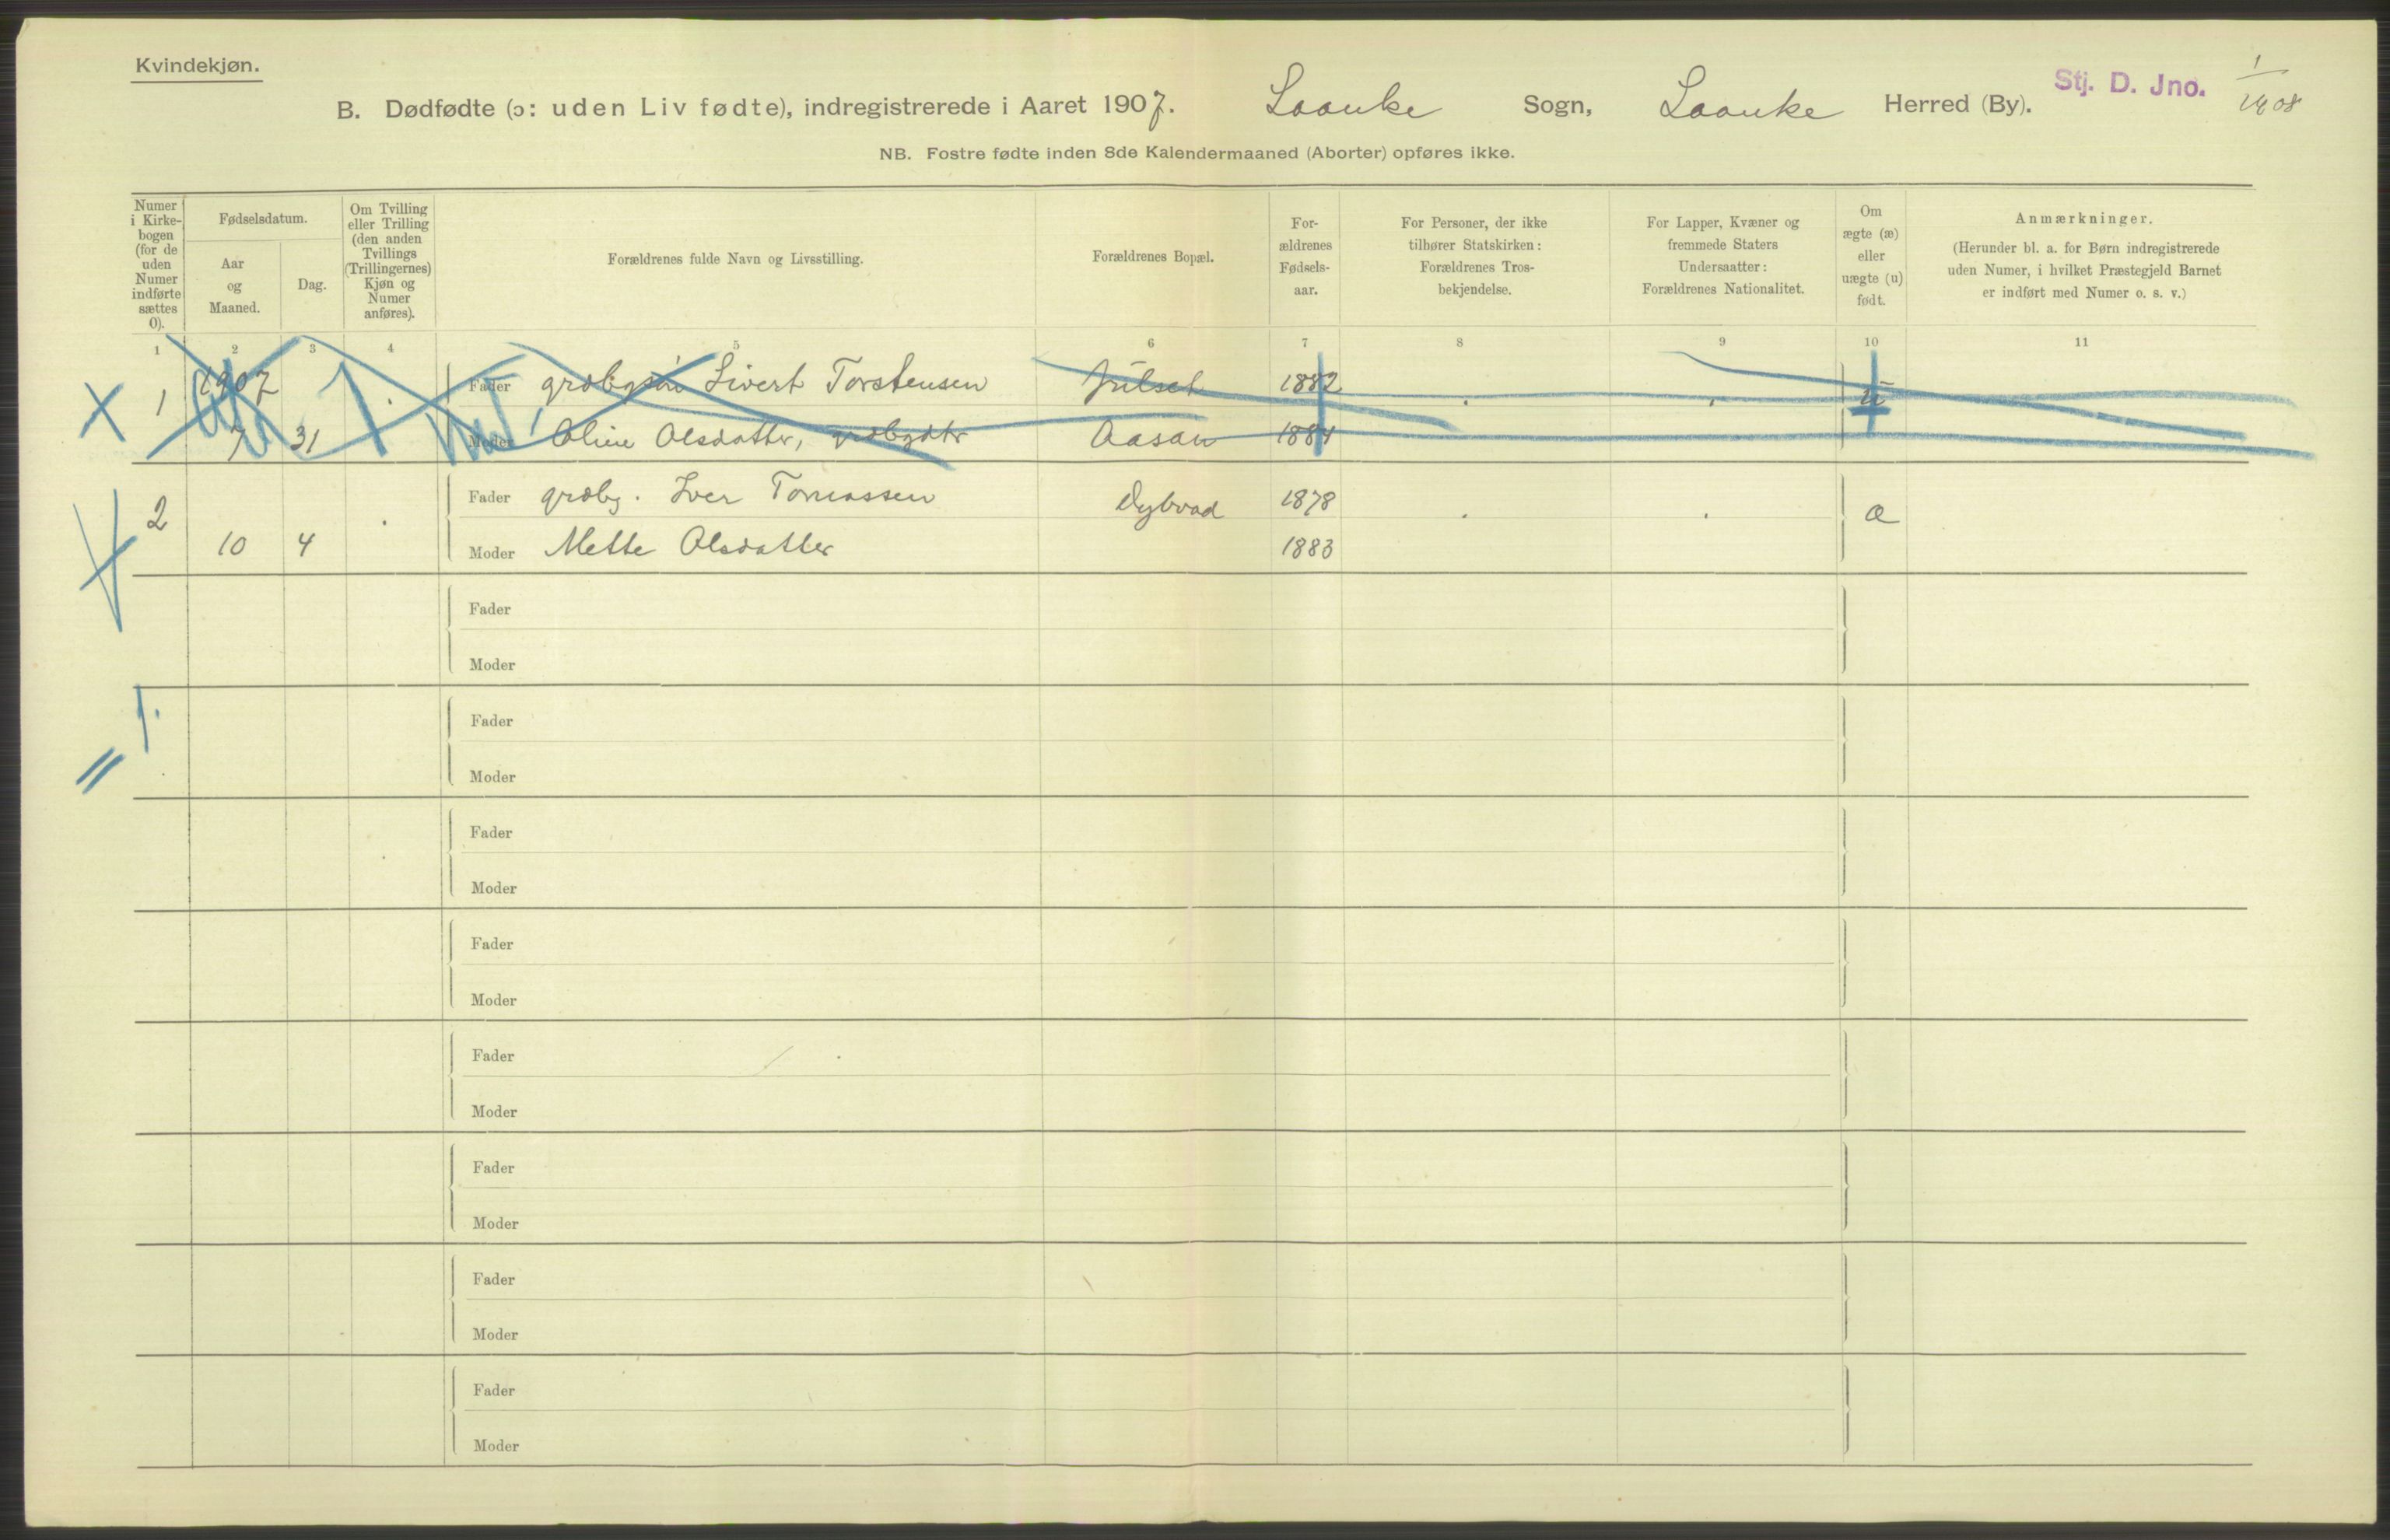 Kvindekjøn.
B. Dødfødte (ɔ: uden Liv fødte), indregistrerede i Aaret 1907. Laanke Sogn, Laanke Herred (By). Stj. D. Jno. 1/1908
NB. Fostre fødte inden 8de Kalendermaaned (Aborter) opføres ikke.
Numer i Kirkebogen (for de uden Numer indførte sættes 0).
Fødselsdatum.
Aar og Maaned.
Dag.
Om Tvilling eller Trilling (den anden Tvillings (Trillingernes) Kjøn og Numer anføres).
Forældrenes fulde Navn og Livsstilling.
Forældrenes Bopæl.
Forældrenes Fødselsaar.
For Personer, der ikke tilhører Statskirken: Forældrenes Trosbekjendelse.
For Lapper, Kvæner og fremmede Staters Undersaatter: Forældrenes Nationalitet.
Om ægte (æ) eller uægte (u) født.
Anmærkninger.
(Herunder bl. a. for Børn indregistrerede uden Numer, i hvilket Præstegjeld Barnet er indført med Numer o. s. v.)
1 2 3 4 5 6 7 8 9 10 11
1 1907 Fader Sivert Torstensen 1882 u
7 31 Moder Oline Olsdatter, Aasan 1884
2 Fader grdbg. Iver Tomassen Dybvad 1878 æ
10 4 Moder Mette Olsdatter 1883
Fader
Moder
Fader
Moder
Fader
Moder
Fader
Moder
Fader
Moder
Fader
Moder
Fader
Moder
Fader
Moder